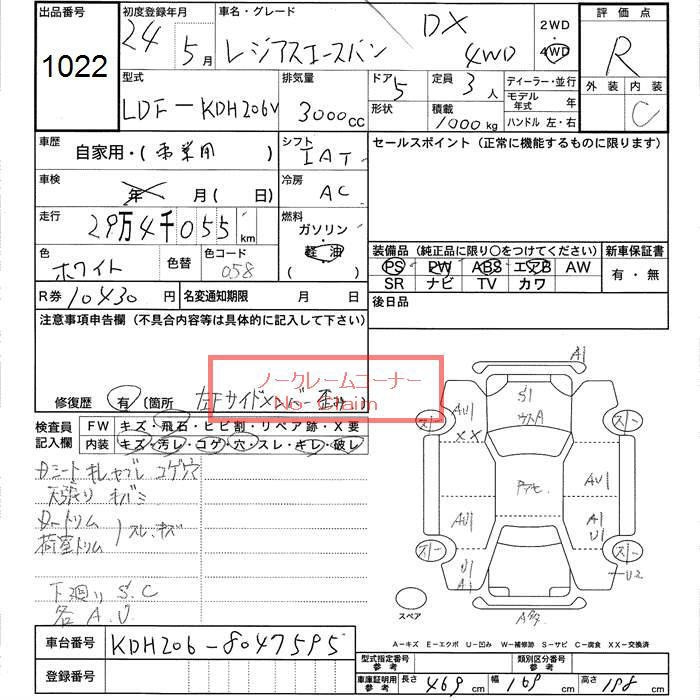 出品番号 初度登録年月 車名・グレード 評価点
1022 24 5月 レジアスエースバン DX 4WD 2WD 4WD R
外装 内装
C
型式 排気量 ドア 定員 ディーラー・並行
LDF-KDH206V 3000cc 5 3人 モデル年式 年
形状 積載 1000kg ハンドル 左・右
車歴 自家用・(事業用) シフト IAT セールスポイント(正常に機能するものに限ります)
車検 年 月(日) 冷房 AC
走行 29万4千055km 燃料 ガソリン 軽油 ( )
装備品(純正品に限り○をつけてください) 新車保証書
色 ホワイト 色替 色コード 058 PS PW ABS エアB AW 有・無
SR ナビ TV カワ
R券 10430円 名変通知期限 月 日 後日品
注意事項申告欄(不具合内容等は具体的に記入して下さい)
ノークレームコーナー
No-Claim
修復歴 有 (箇所 左Fサイドメンバー
検査員記入欄 FW キズ・飛石・ヒビ割・リペア跡・X要
内装 キズ・汚レ・コゲ・穴・スレ・キレ・破レ
Dシート キレ ヤブレ コゲ穴
天張り キバミ
Dートリム
荷室トリム スレ・キズ
下廻り S.C
各A.U
A1
AU1
XX
S1
AU1
AU1
A1
U1
U1
A1
U2
スペア
A-キズ E-エクボ U-凹み W-補修跡 S-サビ C-腐食 XX-交換済
車台番号 KDH206-8047595
登録番号
型式指定番号 参考 類別区分番号 参考
車庫証明用 参考 長さ 469cm 幅 169cm 高さ 198cm